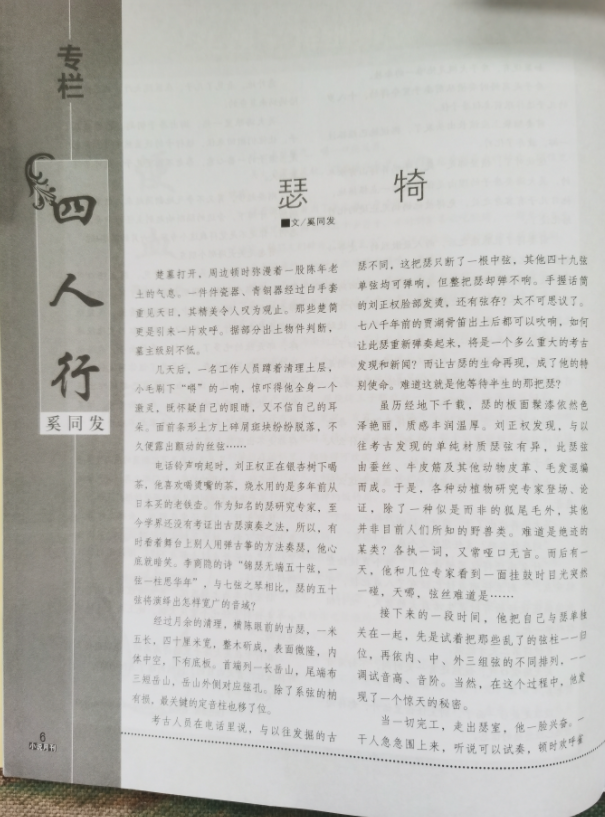 专栏
四人行
奚同发
瑟 犄
■文/奚同发
楚墓打开，周边顿时弥漫着一股陈年老
土的气息。一件件瓷器、青铜器经过白手套
重见天日，其精美令人叹为观止。那些楚简
更是引来一片欢呼。据部分出土物件判断，
墓主级别不低。
几天后，一名工作人员蹲着清理土层，
小毛刷下“嘚”的一响，惊吓得他全身一个
激灵，既怀疑自己的眼睛，又不信自己的耳
朵。面前条形土方上碎屑斑块纷纷脱落，不
久便露出颤动的丝弦……
电话铃声响起时，刘正权正在银杏树下喝
茶，他喜欢喝烫嘴的茶，烧水用的是多年前从
日本买的老铁壶。作为知名的瑟研究专家，至
今学界还没有考证出古瑟演奏之法，所以，有
时看着舞台上别人用弹古筝的方法奏瑟，他心
底就暗笑。李商隐的诗“锦瑟无端五十弦，一
弦一柱思华年”，与七弦之琴相比，瑟的五十
弦将演绎出怎样宽广的音域？
经过月余的清理，横陈眼前的古瑟，一米
五长，四十厘米宽，整木斫成，表面微隆，内
体中空，下有底板。首端列一长岳山，尾端布
三短岳山，岳山外侧对应弦孔。除了系弦的柄
有损，最关键的定音柱也移了位。
考古人员在电话里说，与以往发掘的古
瑟不同，这把瑟只断了一根中弦，其他四十九弦
单弦均可弹响，但整把瑟却弹不响。手握话筒
的刘正权脸部发烫，还有弦存？太不可思议了。
七八千年前的贾湖骨笛出土后都可以吹响，如何
让此瑟重新弹奏起来，将是一个多么重大的考古
发现和新闻？而让古瑟的生命再现，成了他的特
别使命。难道这就是他等待半生的那把瑟？
虽历经地下千载，瑟的板面髹漆依然色
泽艳丽，质感丰润温厚。刘正权发现，与以
往考古发现的单纯材质瑟弦有异，此瑟弦
由蚕丝、牛皮筋及其他动物皮革、毛发混编
而成。于是，各种动植物研究专家登场、论
证，除了一种似是而非的狐尾毛外，其他
并非目前人们所知的野兽类。难道是绝迹的
某类？各执一词，又常哑口无言。而后有一
天，他和几位专家看到一面挂鼓时目光突然
一碰，天哪，弦丝难道是……
接下来的一段时间，他把自己与瑟单独
关在一起，先是试着把那些乱了的弦柱一一归
位，再依内、中、外三组弦的不同排列，一一
调试音高、音阶。当然，在这个过程中，他发
现了一个惊天的秘密。
当一切完工，走出瑟室，他一脸兴奋。一
干人急急围上来，听说可以试奏，顿时欢呼雀
6
小说月刊